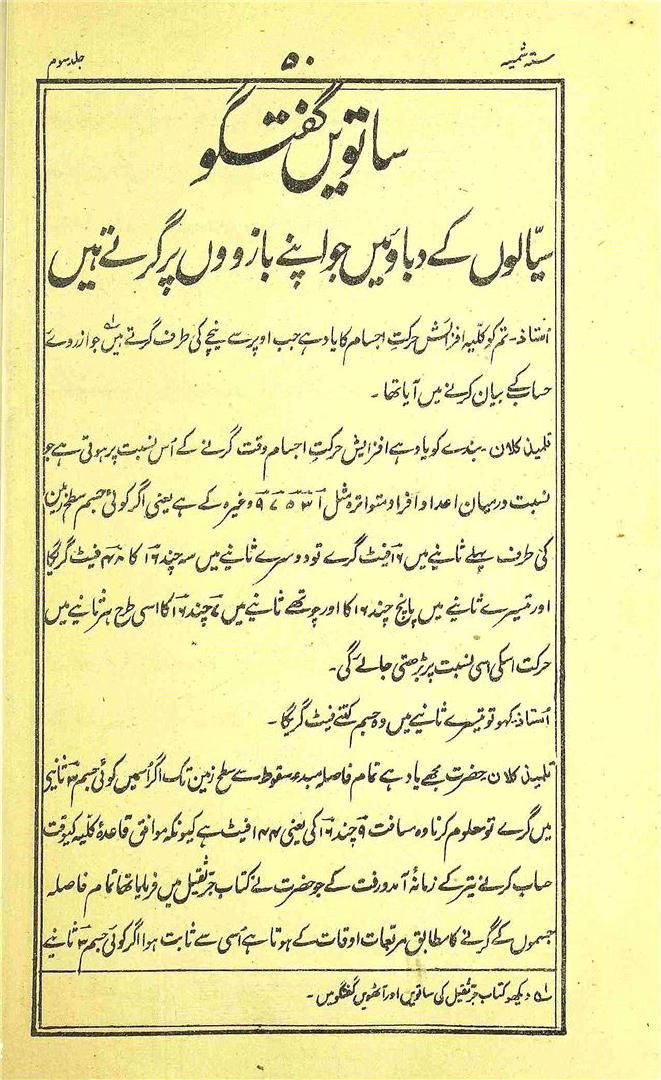 ستہ شمسیہ
۵۰
جلد سوم
ساتویں گفتگو
سیّالوں کے دباؤمیں جو اپنے بازووں پر گرتے ہیں
اُستاذ۔ تم کو کلّیہ افزایش حرکتِ اجسام کا یاد ہے جب اوپر سے نیچے کی طرف گرتے ہیں ۱؎ جو ازروے
حساب کے بیان کرنے میں آیا تھا۔
تلمیذ کلان۔ بندے کو یاد ہے افزایش حرکتِ اجسام وقت گرنے کے اُس نسبت پر ہوتی ہے جو
نسبت درمیان اعداد افراد متواترہ مثل ۱ ۳ ۵ ۷ ۹ وغیرہ کے ہے یعنی اگر کوئی جسم سطح زمین
کی طرف پہلے ثانیے میں ۱۶ فیٹ گرے تو دوسرے ثانیے میں سہ چند ۱۶ کا ۴۸ فیٹ گریگا
اور تیسرے ثانیے میں پانچ چند ۱۶ کا اور چوتھے ثانیے میں ۷ چند ۱۶ کا اسی طرح ہر ثانیے میں
حرکت اسکی اسی نسبت پر بڑھتی جائےگی۔
اُستاذ۔ کہو تو تیسرے ثانیے میں وہ جسم کتنے فیٹ گریگا۔
تلمیذ کلان۔ حضرت مجھے یاد ہے تمام فاصلہ مبدء سقوط سے سطح زمین تک اگر اُسمیں کوئی جسم ۳ ثانیے
میں گرے تو معلوم کرنا وہ مسافت ۹ چند ۱۶ کی یعنی ۱۴۴ فیٹ ہے کیونکہ موافق قاعدۂ کلّیہ کیوقت
حساب کرنے تیر کے زمانۂ آمدورفت کے جو حضرت نے کتاب جرّثقیل میں فرمایا تھا تمام فاصلہ
جسموں کے گرنے کا مطابق مربعات اوقات کے ہوتا ہے اُسی سے ثابت ہوا اگر کوئی جسم ۳ ثانیے
۱؎ دیکھو کتاب جرّثقیل کی ساتویں اور آٹھویں گفتگو میں۔